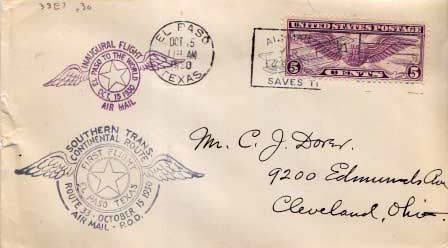 33E7 .30
INAUGURAL FLIGHT
EL PASO TO THE WORLD
OCT 15 1930
AIR MAIL
EL PASO
OCT 15
AM
TEXAS
AIR
SAVES TI
UNITED STATES POSTAGE
5 CENTS 5
SOUTHERN TRANS.
CONTINENTAL ROUTE
FIRST FLIGHT
EL PASO TEXAS
ROUTE 33, OCTOBER 15 1930
AIR MAIL - P.O.D.
Mr. C. J. Dorer.
9200 Edmunds Av
Cleveland, Ohio.